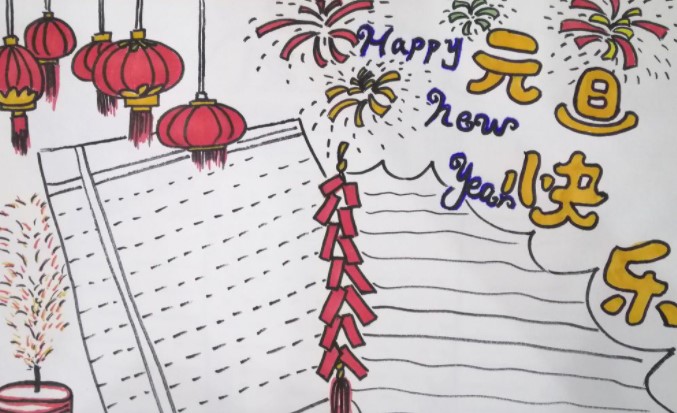 Happy
New
Year
元旦
快乐